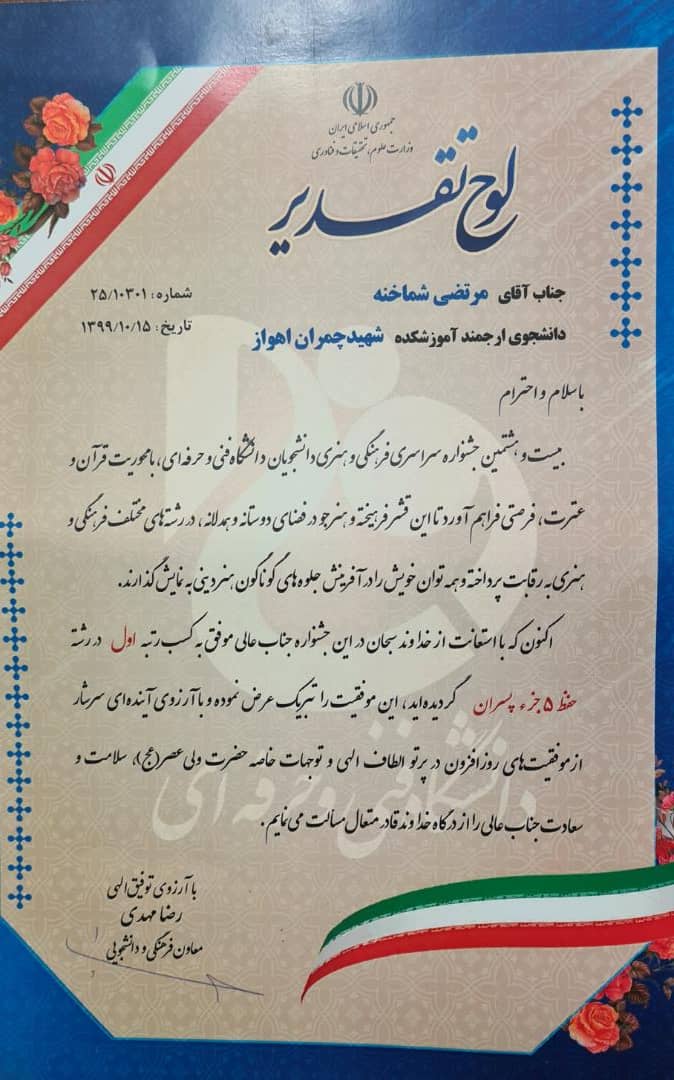 جمهوری اسلامی ایران
وزارت علوم، تحقیقات و فناوری
لوح تقدیر
جناب آقای مرتضی شماخنه
شماره: ۲۵/۱۰۳۰۱
دانشجوی ارجمند آموزشکده شهید چمران اهواز
تاریخ: ۱۳۹۹/۱۰/۱۵
با سلام و احترام
بیست و هشتمین جشنواره سراسری فرهنگی و هنری دانشجویان دانشگاه فنی و حرفه ای، با محوریت قرآن و
عترت، فرصتی فراهم آورد تا این قشر فرهیخته و هنرجو در فضای دوستانه و همدلانه، در رشته های مختلف فرهنگی و
هنری به رقابت پرداخته و همه توان خویش را در آفرینش جلوه های گوناگون هنر دینی به نمایش گذارند.
اکنون که با استعانت از خداوند سبحان در این جشنواره جناب عالی موفق به کسب رتبه اول در رشته
حفظ ۵ جزء پسران گردیده اید، این موفقیت را تبریک عرض نموده و با آرزوی آینده ای سرشار
از موفقیت های روزافزون در پرتو الطاف الهی و توجهات خاصه حضرت ولی عصر(عج)، سلامت و
سعادت جناب عالی را از درگاه خداوند قادر متعال مسألت می نمایم.
دانشگاه فنی و حرفه ای
با آرزوی توفیق الهی
رضا مهدی
معاون فرهنگی و دانشجویی